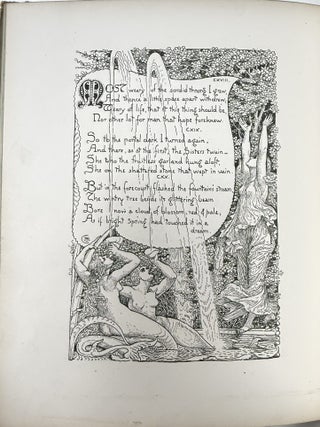 CXVIII.
MOST weary of the sordid throng I grew
And thence a little space apart withdrew,
Weary of life, that of this thing should be
Nor other lot for man that hope foreknew
CXIX.
So to the portal dark I turned again,
And there, as at the first, the Sisters twain—
She who the fruitless garland hung aloft,
She on the shattered stone that wept in vain
CXX.
But in the forecourt flashed the fountain's stream
The wintry tree beside its glittering beam
Bore now a cloud of blossom, red & pale,
As if bright Spring had touched it in a
dream